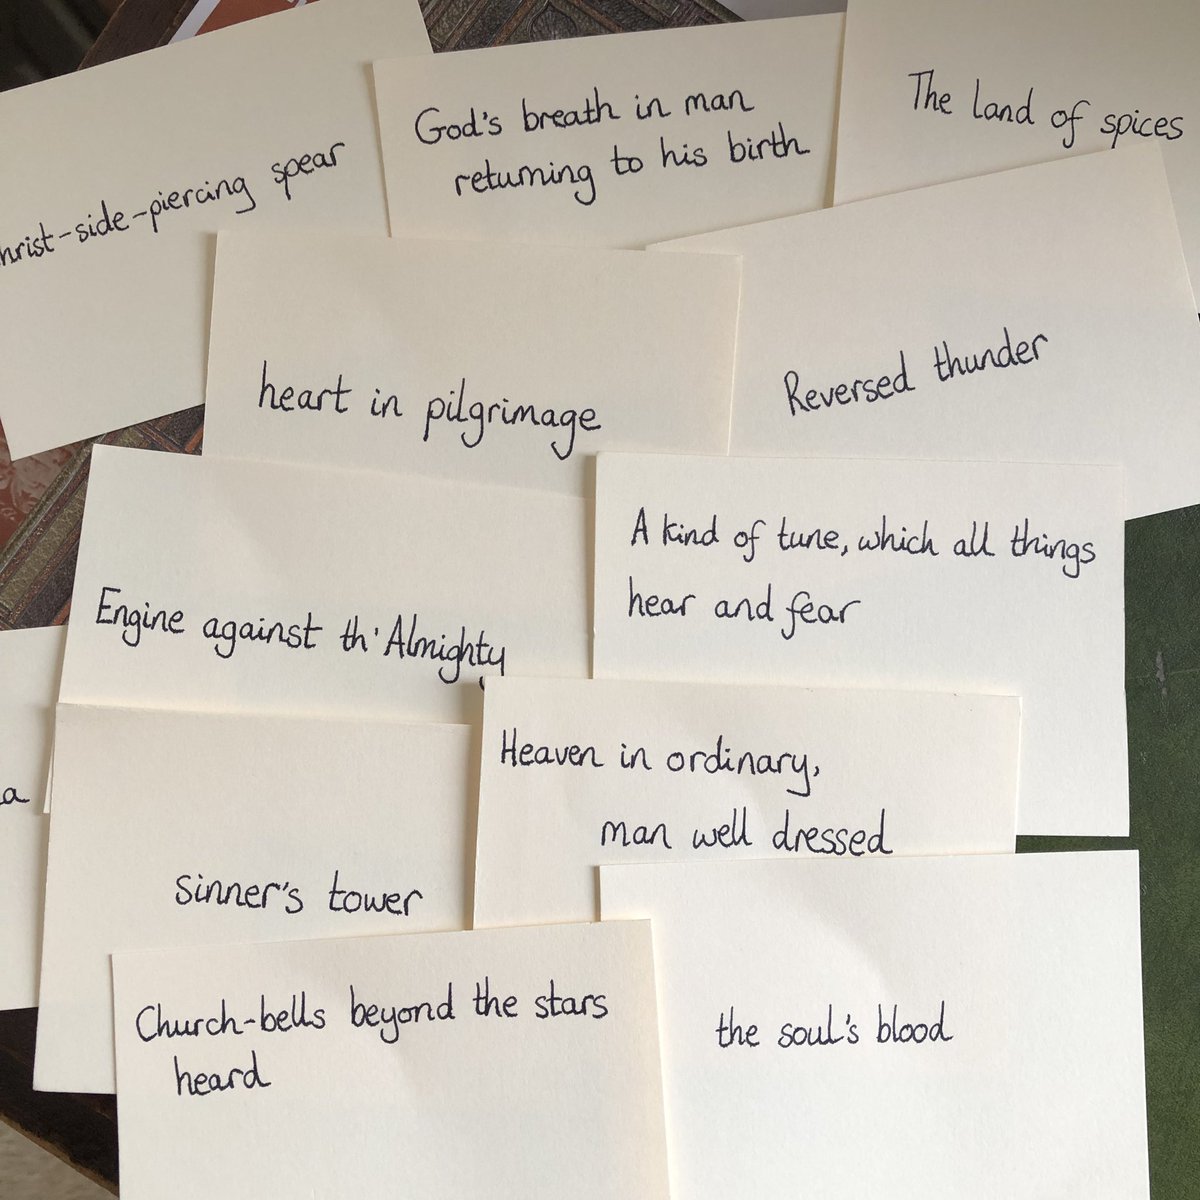 God's breath in man
returning to his birth
The land of spices
hrist-side-piercing spear
heart in pilgrimage
Reversed thunder
Engine against th' Almighty
A kind of tune, which all things
hear and fear
Heaven in ordinary,
man well dressed
a
sinner's tower
Church-bells beyond the stars
heard
the soul's blood